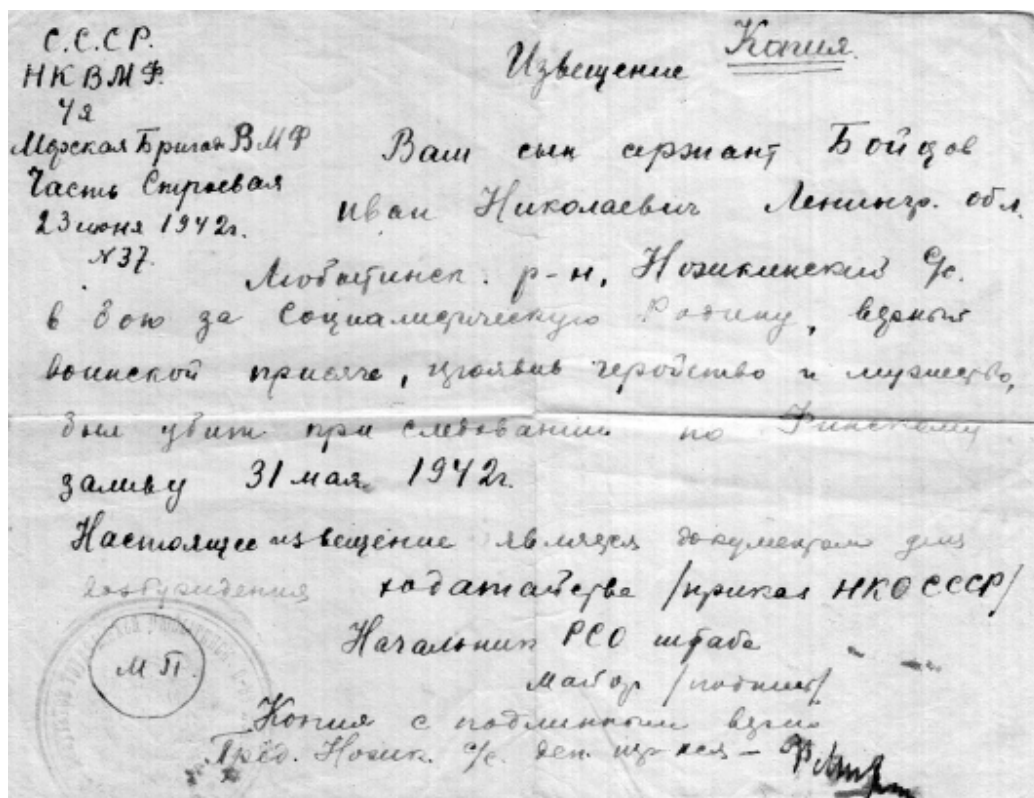 С.С.С.Р.
НКВМФ.
Копия
Извещение
4я
Морская Бригада ВМФ
Часть Строевая
23 июня 1942г.
№37.
Ваш сын сержант Бойцов
иван Николаевич Ленингр. обл.
Любытинск. р-н, Ножкинский с/с.
в бою за Социалистическую Родину, верный
воинской присяге, проявив геройство и мужество,
был убит при следовании по Финскому
заливу 31 мая 1942г.
Настоящее извещение является документом для
возбуждения ходатайства /приказ НКО СССР/
Начальник РСО штаба
майор /подпись/
М.П.
Копия с подлинным верно
Пред. с/с. деп. тр-ся –